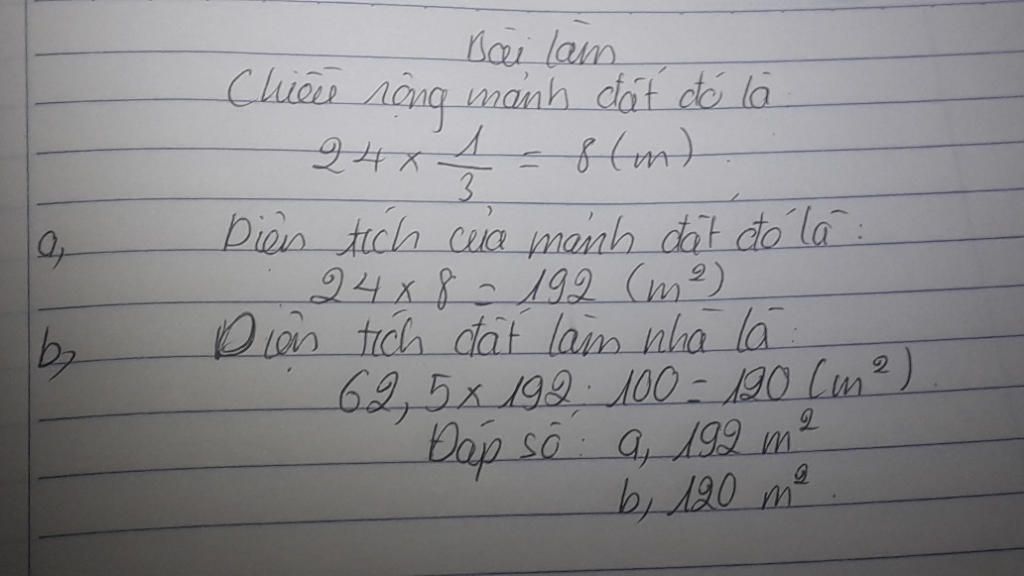 Bài làm
Chiều rộng mảnh đất đó là
24 × 1/3 = 8 (m).
a, Diện tích của mảnh đất đó là:
24 × 8 = 192 (m²)
b, Diện tích đất làm nhà là:
62,5 × 192 : 100 = 120 (m²).
Đáp số: a, 192 m²
b, 120 m².